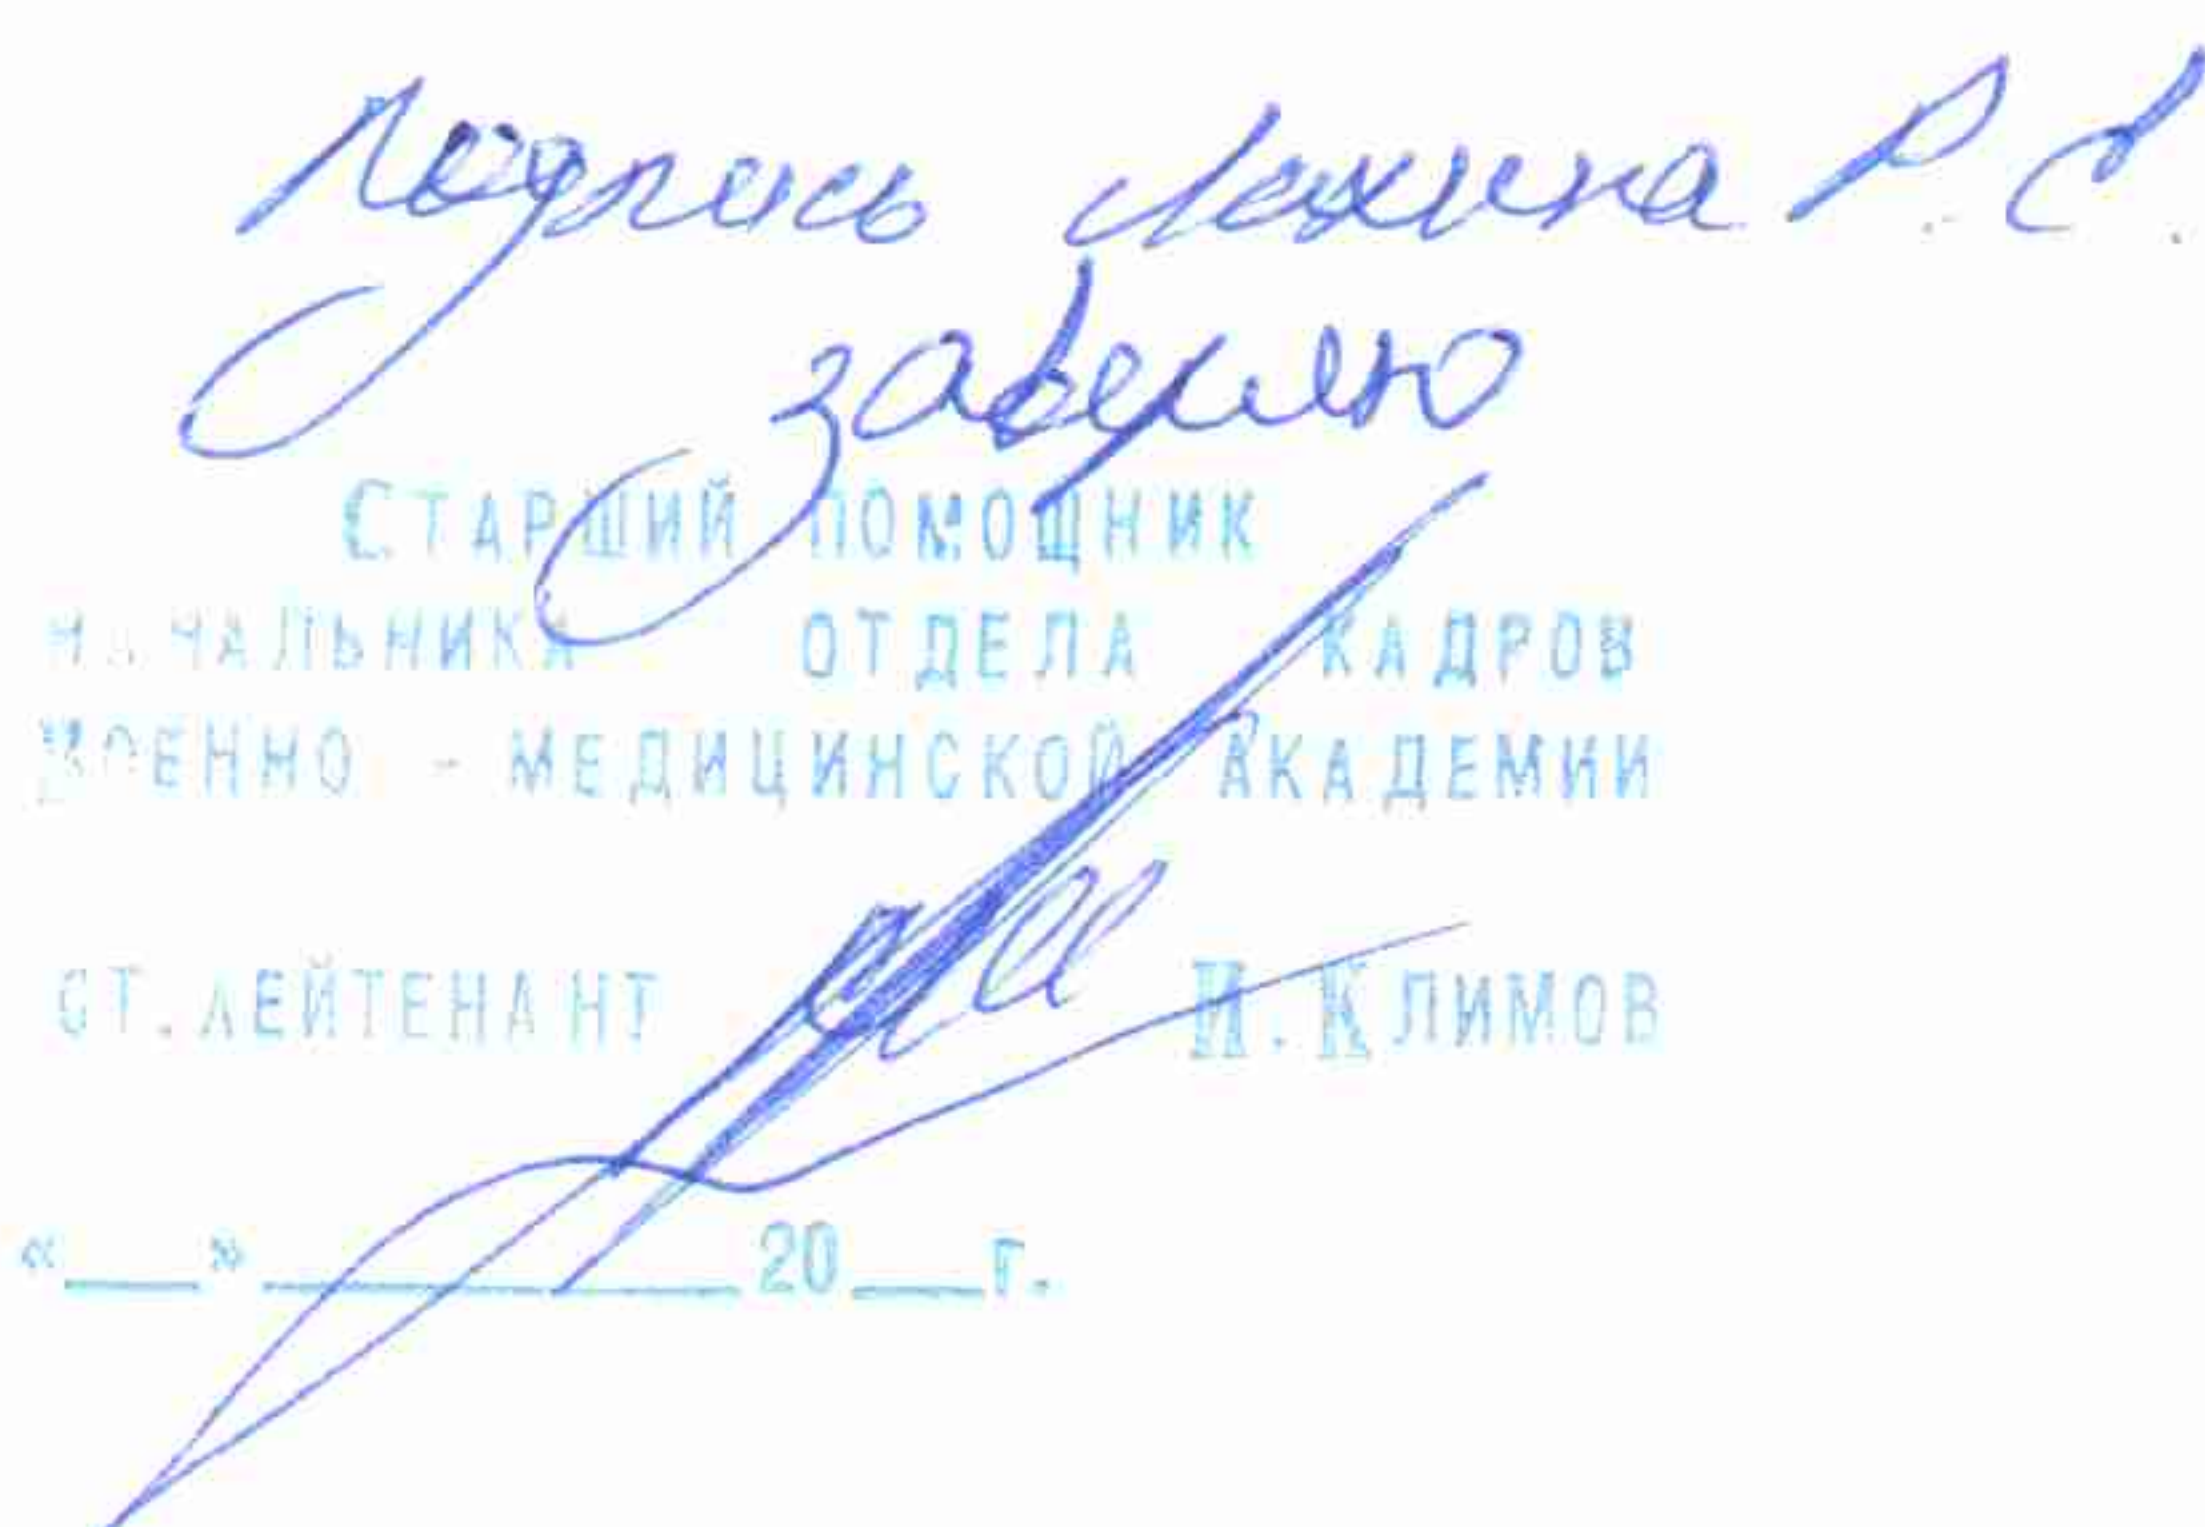 Подпись Лихина Р. С.
заверяю
СТАРШИЙ ПОМОЩНИК
НАЧАЛЬНИКА ОТДЕЛА КАДРОВ
ВОЕННО - МЕДИЦИНСКОЙ АКАДЕМИИ
СТ. ЛЕЙТЕНАНТ И. КЛИМОВ
«___» ________ 20___г.